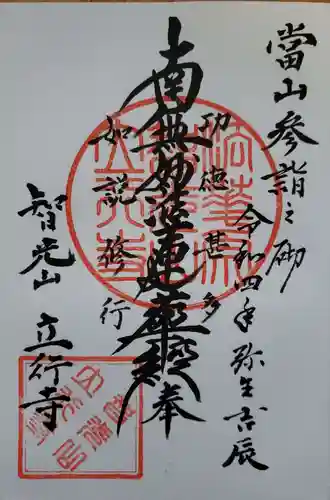 當山参詣之砌
令和四年弥生吉辰
功徳甚多
南無妙法蓮華経
奉
如説修行
智光山 立行寺